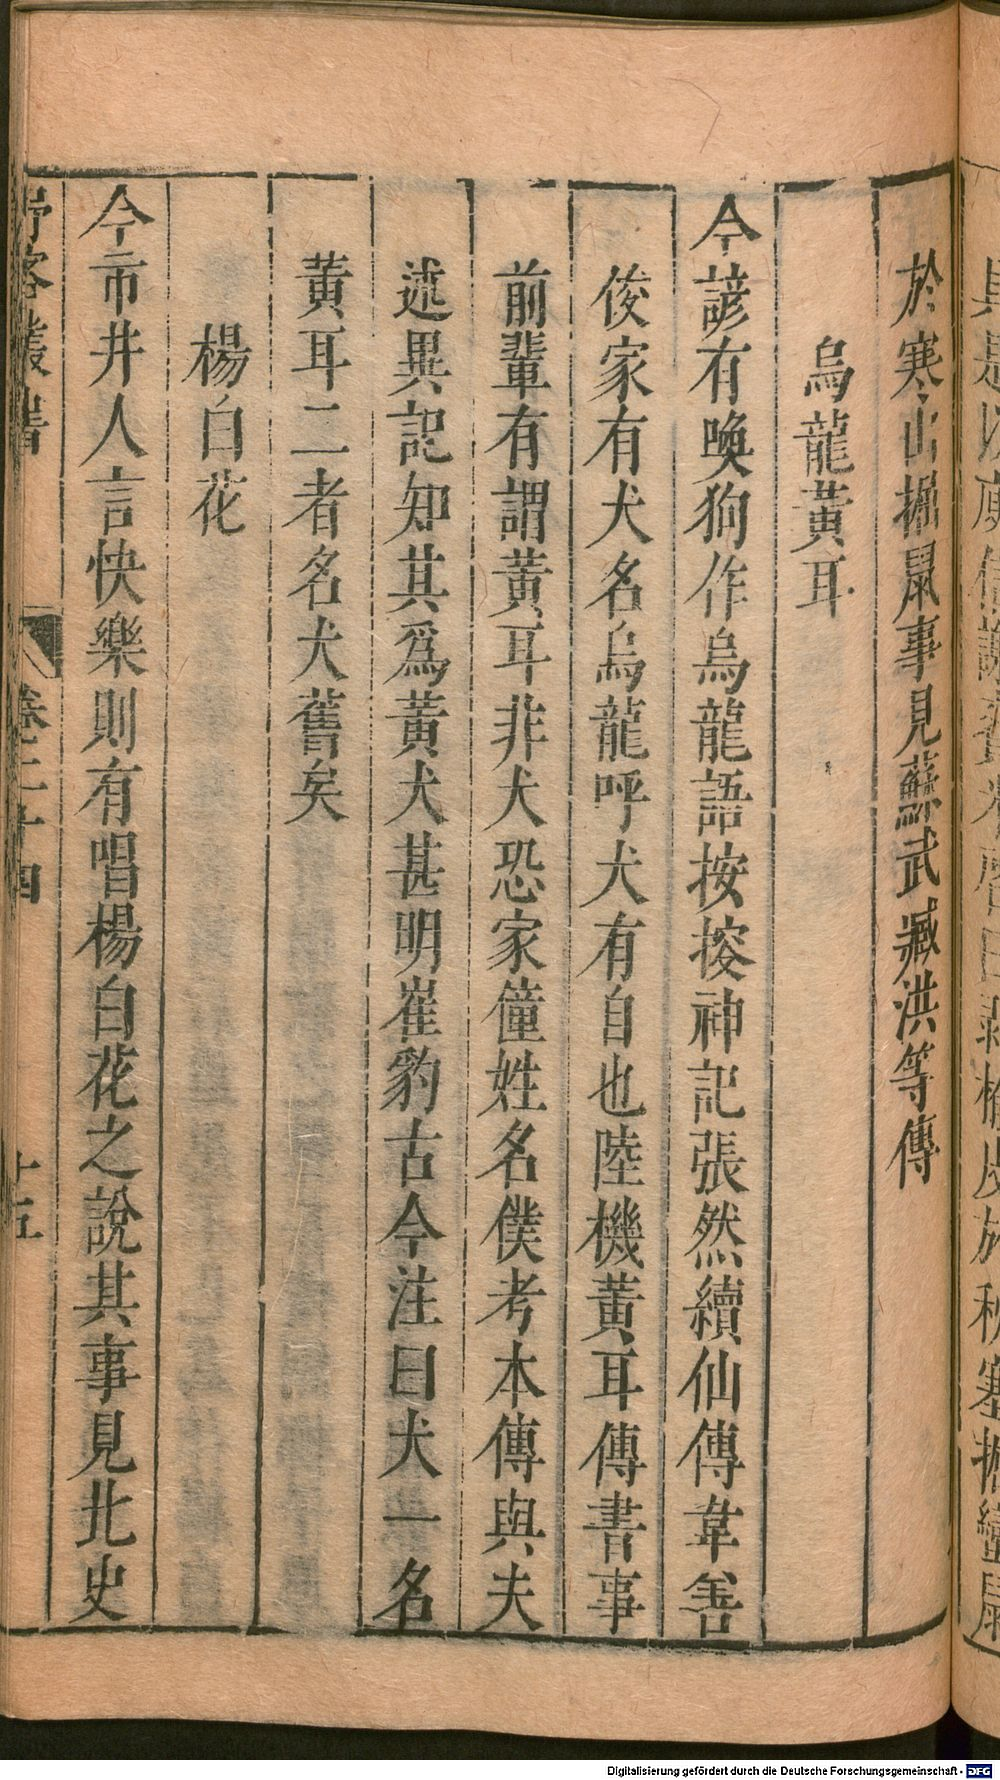 於寒出掘鼠事見蘇武臧洪等傳
烏龍黃耳
今諺有喚狗作烏龍語按搜神記張然續仙傳韋善
俊家有犬名烏龍呼犬有自也陸機黃耳傳書事
前輩有謂黃耳非犬恐家僮姓名僕考本傳與夫
述異記知其爲黃犬甚明崔豹古今注曰犬一名
黃耳二者名犬舊矣
楊白花
今市井人言快樂則有唱楊白花之說其事見北史
野客叢書 卷二十四 十五
Digitalisierung gefördert durch die Deutsche Forschungsgemeinschaft - DFG